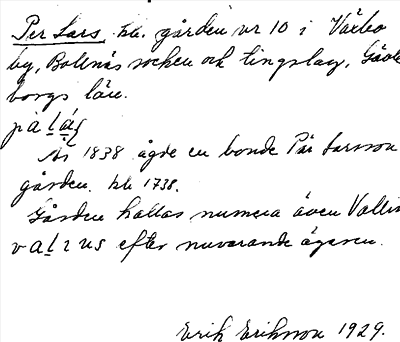 Per Lars. hb. gården nr 10 i Växbo
by, Bollnäs socken och tingslag, Gävle
borgs län.
År 1838 ägde en bonde Pär Larsson
gården. hb 1738.
Gården kallas numera även Vallin
efter nuvarande ägaren.
Erik Eriksson 1929.